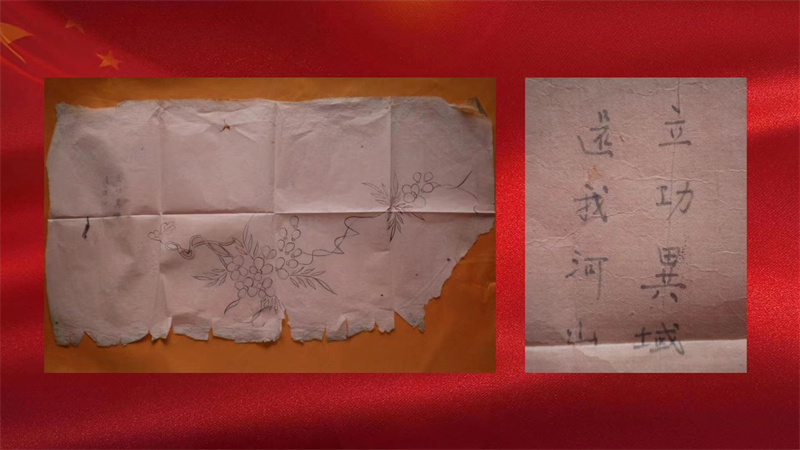 立功異域
還我河山